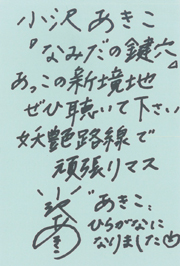 小沢あきこ
『なみだの鍵穴』
あっこの新境地
ぜひ聴いて下さい
妖艶路線で
頑張りマス
"あきこ"
ひらがなに
なりました